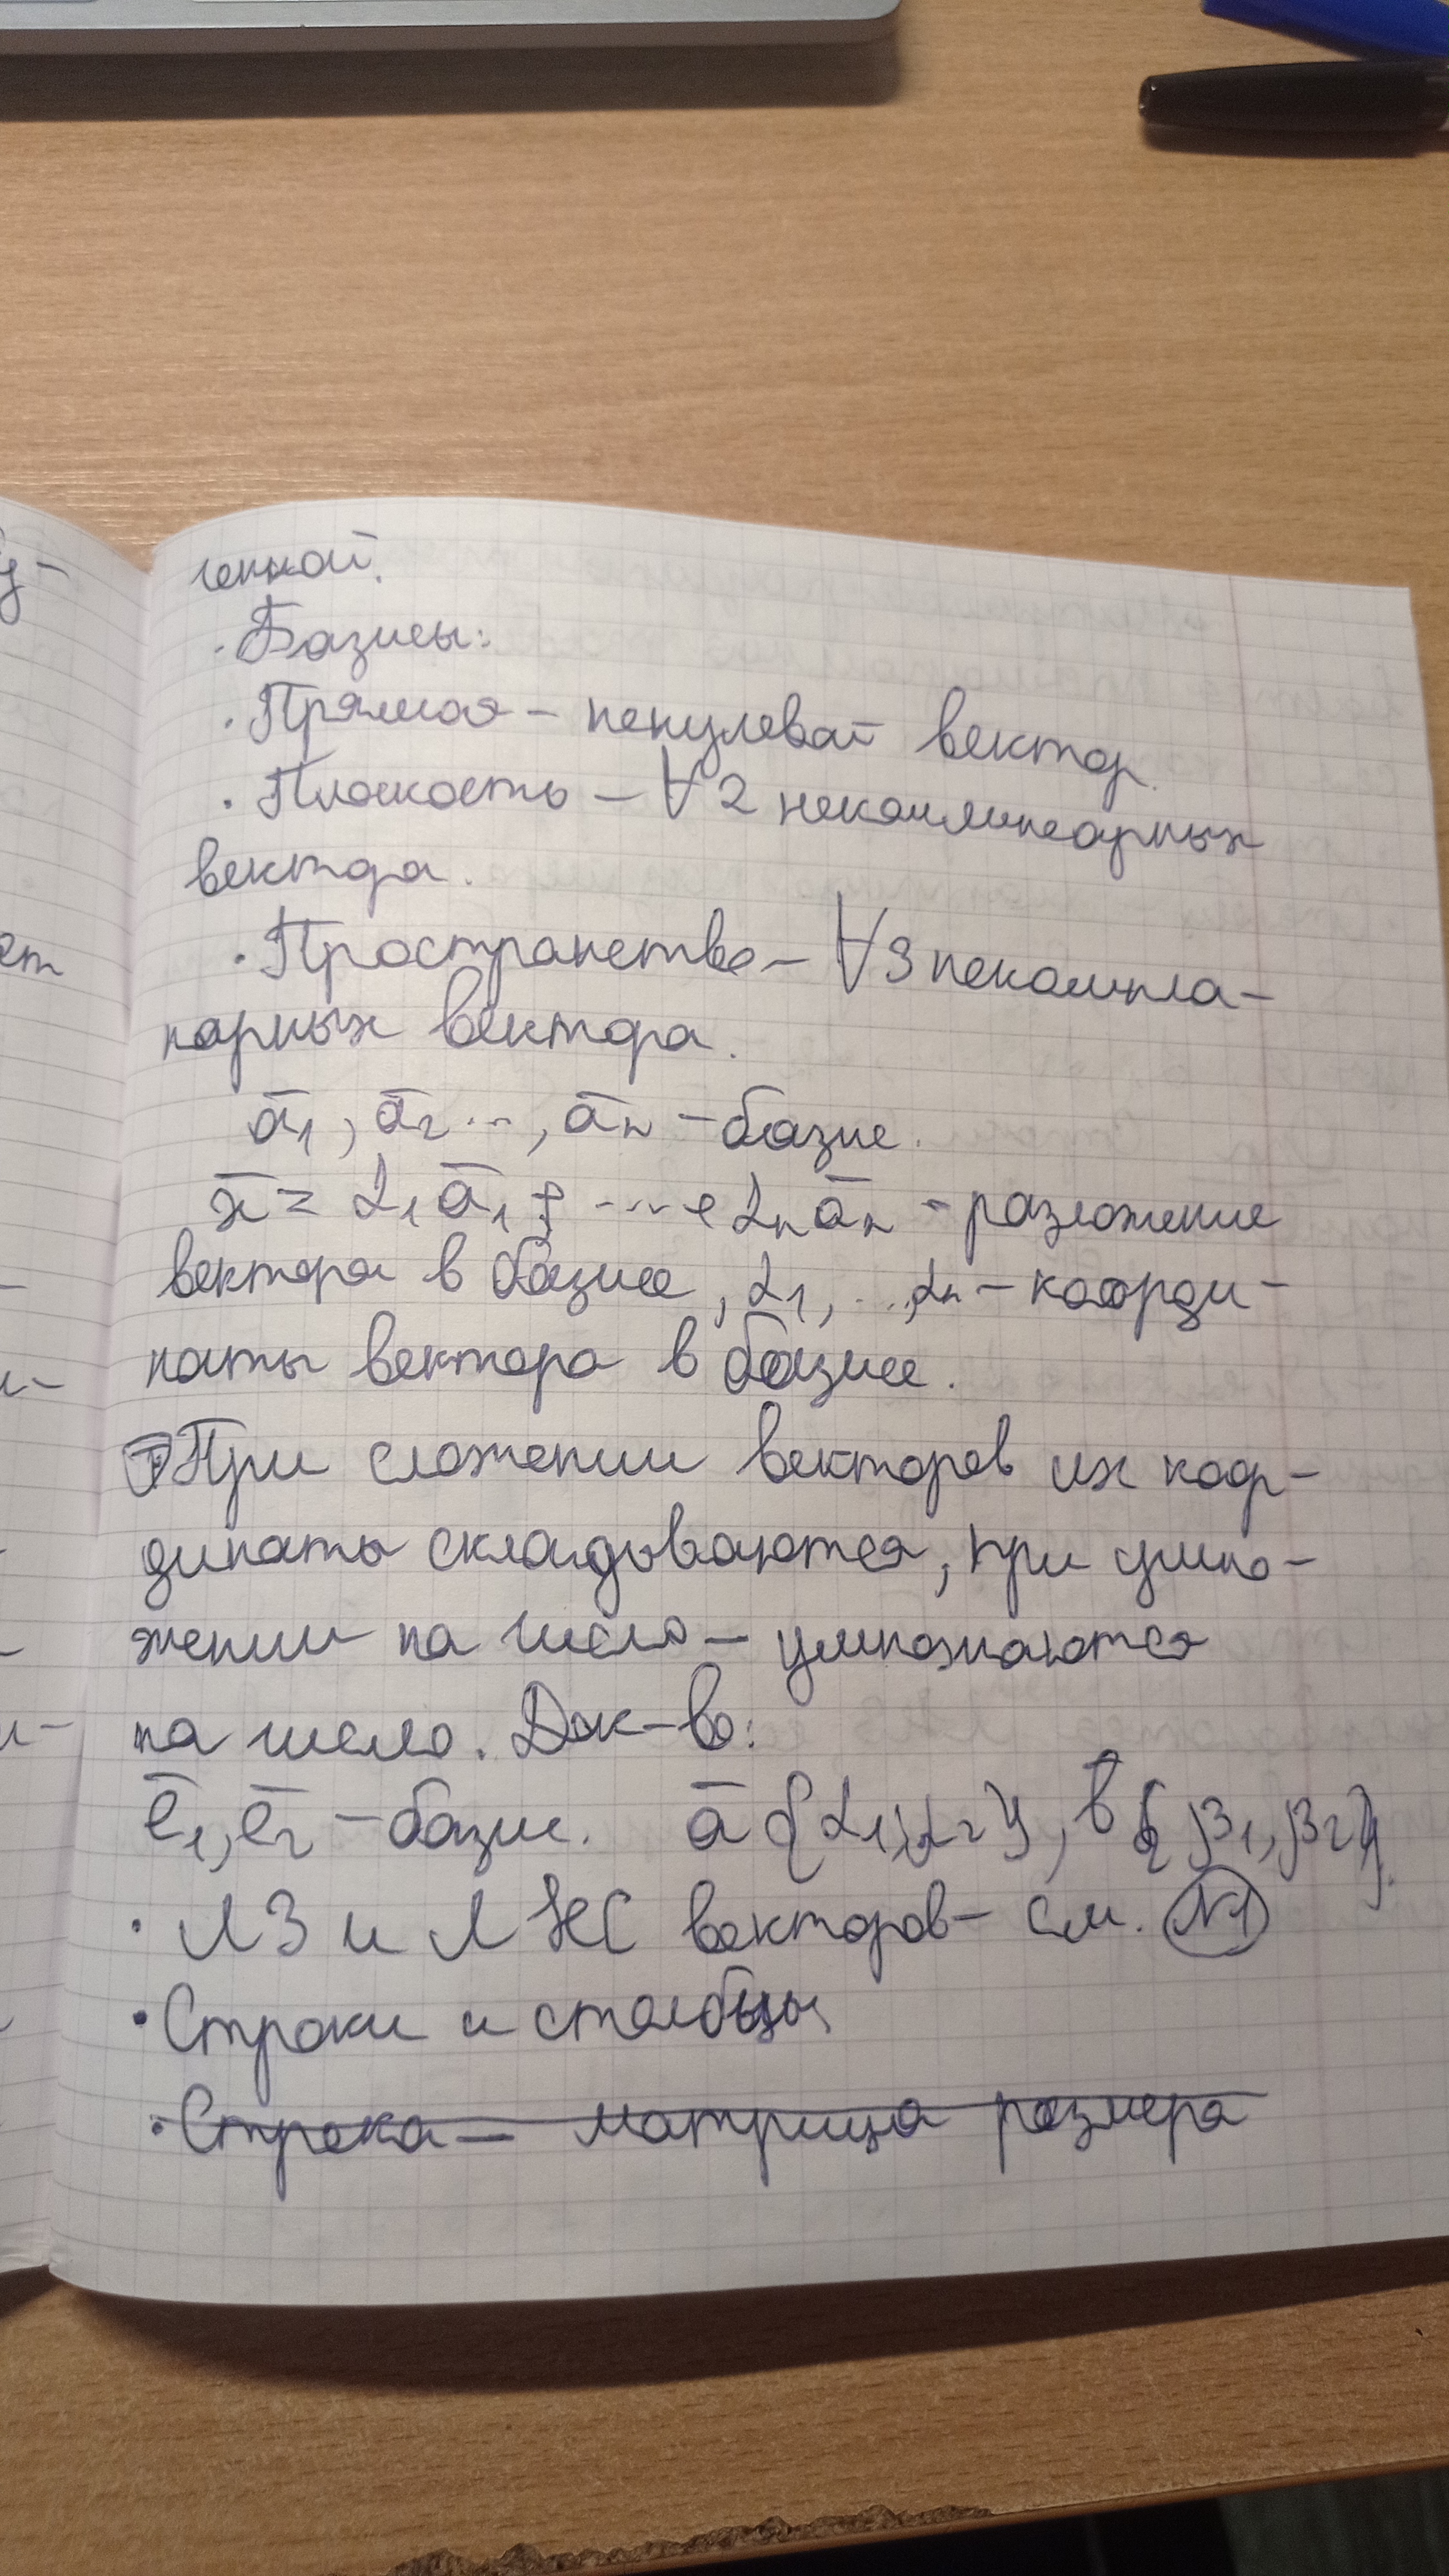 ченной.
· Базисы:
· Прямая – ненулевой вектор.
· Плоскость – ∀ 2 неколлинеарных
вектора.
· Пространство – ∀ 3 некомпла-
нарных вектора.
ā₁, ā₂ ..., āₙ – базис.
x̄ = α₁ā₁ + ... + αₙāₙ – разложение
вектора в базисе, α₁, ..., αₙ – коорди-
наты вектора в базисе.
При сложении векторов их коор-
динаты складываются, при умно-
жении на число – умножаются
на число. Док-во:
ē₁, ē₂ – базис. ā {α₁, α₂}, b̄ {β₁, β₂}.
· ЛЗ и ЛНС векторов – см. №1
· Строки и столбцы
· Строка – матрица размера